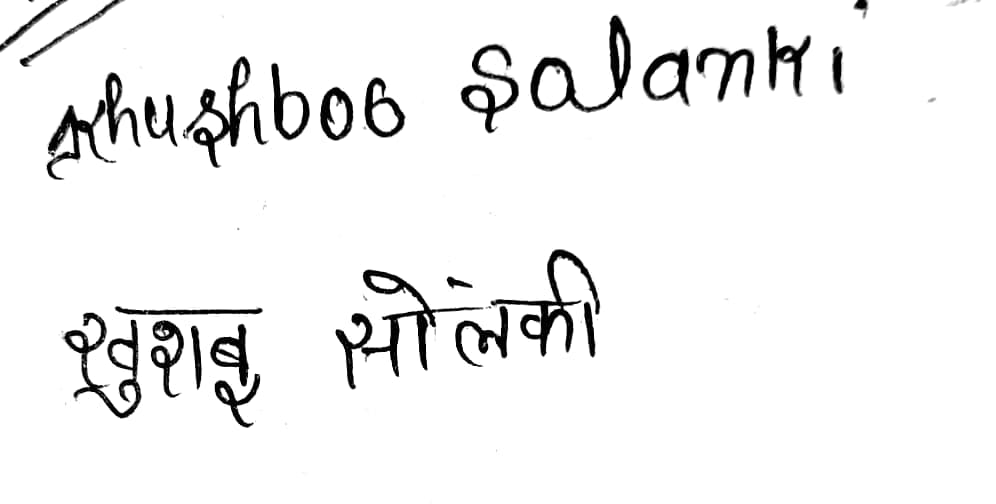 Khushboo Salanki
खुशबू सोलंकी